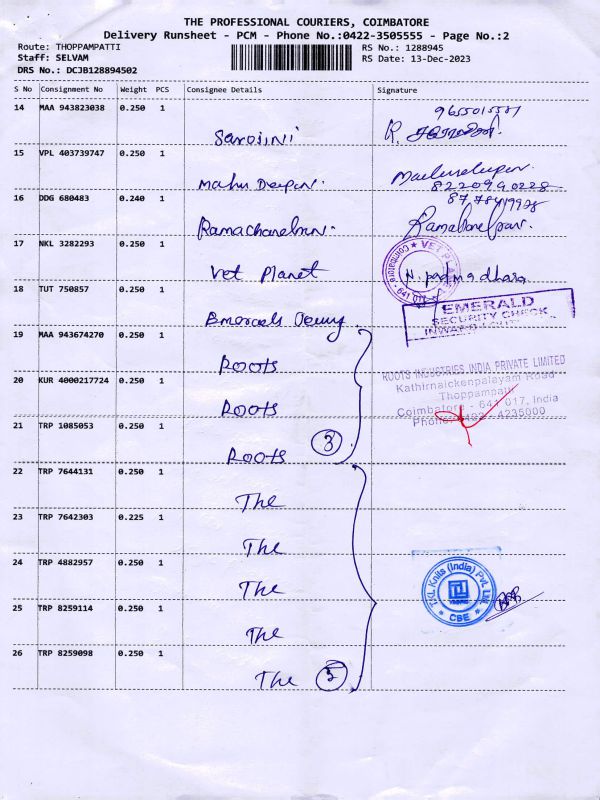 THE PROFESSIONAL COURIERS, COIMBATORE
Delivery Runsheet - PCM - Phone No.:0422-3505555 - Page No.:2
Route: THOPPAMPATTI
RS No.: 1288945
Staff: SELVAM
RS Date: 13-Dec-2023
DRS No.: DCJB128894502
S No Consignment No Weight PCS Consignee Details Signature
14 MAA 943823038 0.250 1
Sarojini
15 VPL 403739747 0.250 1
Mahu Deepan.
8220940228
16 DDG 680483 0.240 1
Ramachandran.
17 NKL 3282293 0.250 1
Vet Planet
N. padmadhara
18 TUT 750857 0.250 1
EMERALD
SECURITY CHECK
19 MAA 943674270 0.250 1
Roots
ROOTS INDUSTRIES INDIA PRIVATE LIMITED
Kathirnaickenpalayam Road
20 KUR 4000217724 0.250 1
Thoppampatti
Roots
Coimbatore - 641 017, India
Phone: 0422 - 4235000
21 TRP 1085053 0.250 1
Roots 3
22 TRP 7644131 0.250 1
The
23 TRP 7642303 0.225 1
The
24 TRP 4882957 0.250 1
The
T.K.L. Knits (India) Pvt. Ltd.
CBE
25 TRP 8259114 0.250 1
The
26 TRP 8259098 0.250 1
The 5